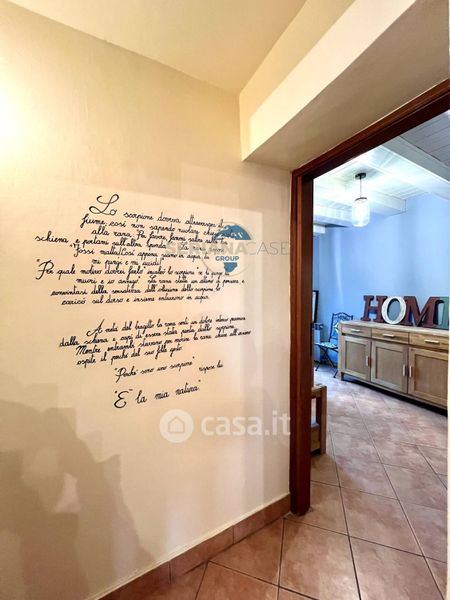 Lo scorpione doveva attraversare il
fiume, così non sapendo nuotare, chiese
alla rana: "Per favore, fammi salire sulla tua
schiena, e portami sull'altra sponda."
"Fossi matta! Così appena siamo in acqua
mi pungi e mi uccidi!"
"Per quale motivo dovrei farlo" incalzò lo scorpione "se ti pungo
muori e io annego!" rana stette un attimo a pensare, e
convintasi della dell'obiezione dello scorpione, lo
caricò sul dorso e insieme entrarono in acqua.
A metà del tragitto la rana sentì un dolore intenso provenire
dalla schiena e capì di essere stata punta dallo scorpione.
Mentre entrambi stavano per morire la rana chiese all'
ospite il perché del suo folle gesto.
"Perché sono uno scorpione" rispose lui
"E' la mia natura"
SEMPIONECASE
GROUP
casa.it
HOME